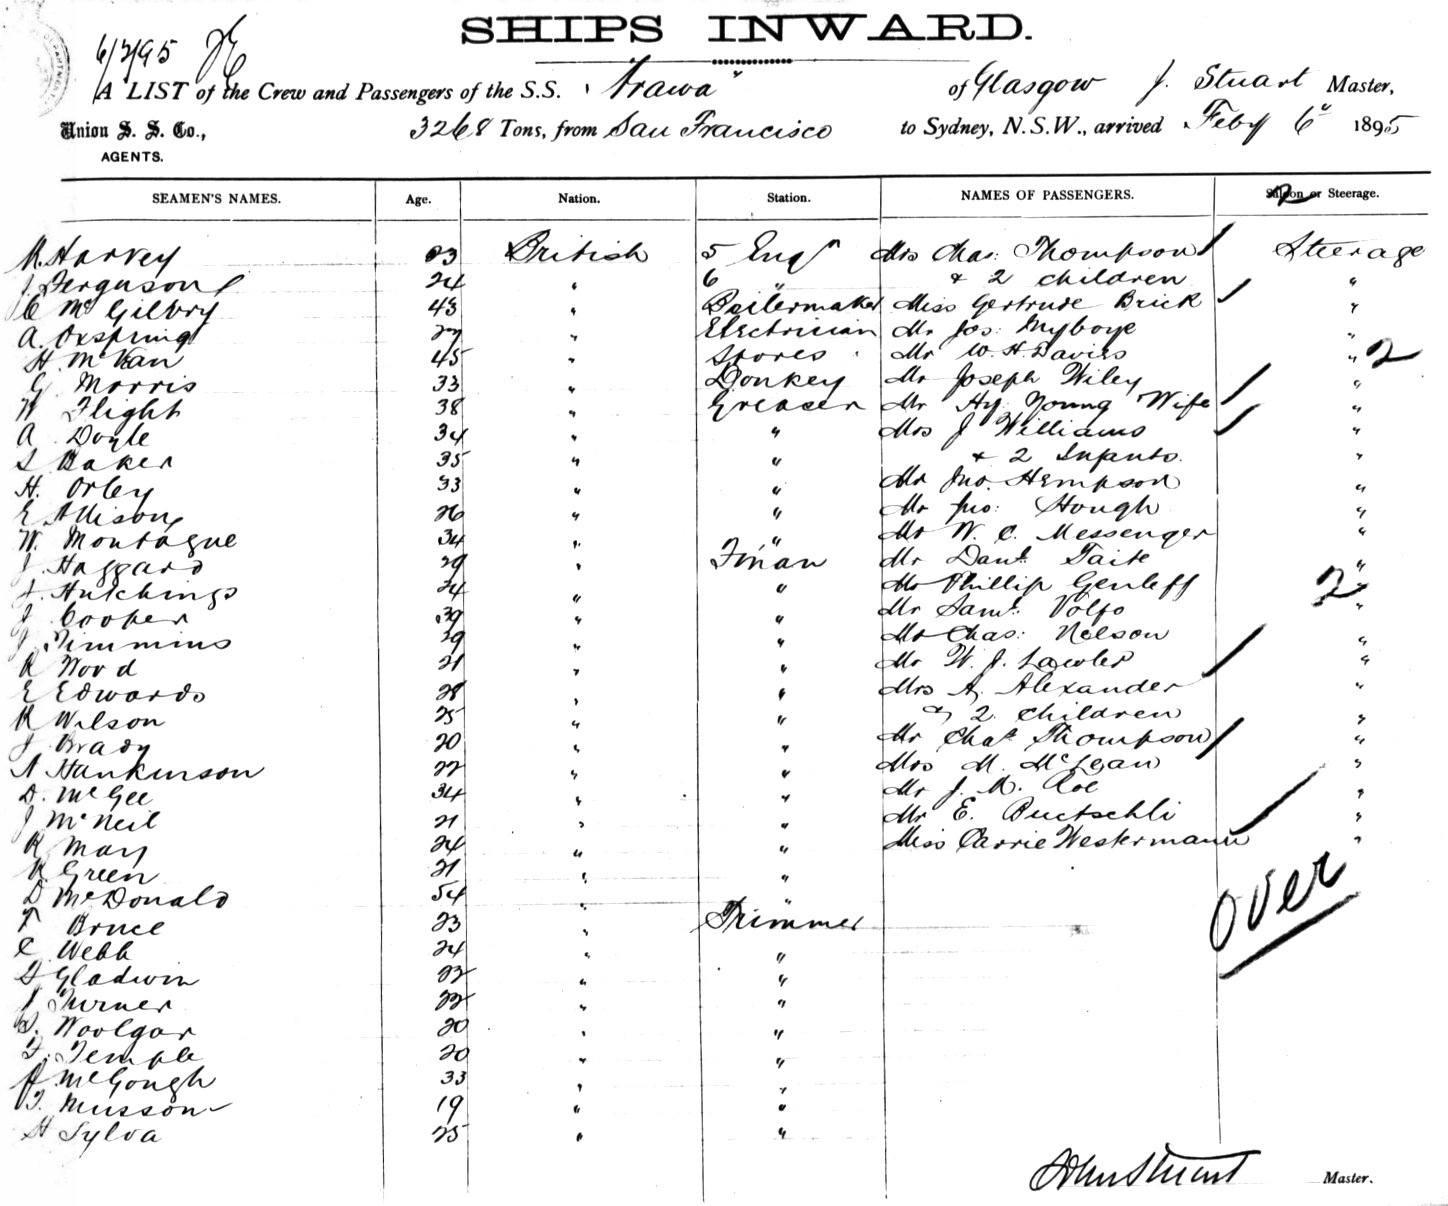 SHIPS INWARD.
6/2/95
A LIST of the Crew and Passengers of the S.S. "Arawa" of Glasgow J. Stuart Master,
Union S. S. Co., 3268 Tons, from San Francisco to Sydney, N.S.W., arrived Feby 6" 1895
AGENTS.
SEAMEN'S NAMES. Age. Nation. Station. NAMES OF PASSENGERS. Saloon or Steerage.
M. Harvey 23 British 5 Engr Mrs Chas: Thompson Steerage
J Ferguson 24 " 6 " & 2 children "
C McGilvry 43 " Boilermaker Miss Gertrude Brick "
A. Oxspring 27 " Electrician Mr Jos: Inyboye "
H. McVan 45 " Stores Mr W. H. Davies " 2
G Morris 33 " Donkey Mr Joseph Wiley "
W Flight 38 " Greaser Mr Hy Young Wife "
A Doyle 34 " " Mrs J Williams "
S Baker 35 " " & 2 Infants. "
H. Orley 33 " " Mr Jno. Hempson "
E Allison 26 " " Mr Jno: Hough "
W. Montague 34 " " Mr W. C. Messenger "
J Haggard 29 " F'man Mr Danl Taite "
J. Hutchings 24 " " Mr Phillip Genleff 2 "
J Cooper 39 " " Mr Saml. Volfo "
J Timmins 39 " " Mr Chas: Nelson "
R Wood 21 " " Mr W. J. Lawler "
E Edwards 28 " " Mrs A. Alexander "
R Wilson 25 " " & 2 children "
J Brady 20 " " Mr Chas Thompson "
A Hankinson 22 " " Mrs M. McLean "
D. McGee 34 " " Mr J. M. Roe "
J McNeil 21 " " Mr E. Buetschli "
R May 24 " " Miss Carrie Westermann "
R Green 21 " "
D McDonald 54 " "
T Bruce 23 " Trimmer over
C Webb 24 " "
S Gladwin 22 " "
J Turner 22 " "
D. Woolgar 20 " "
F. Temple 20 " "
P McGough 33 " "
T. Musson 19 " "
H Sylva 25 " "
John Stuart Master.